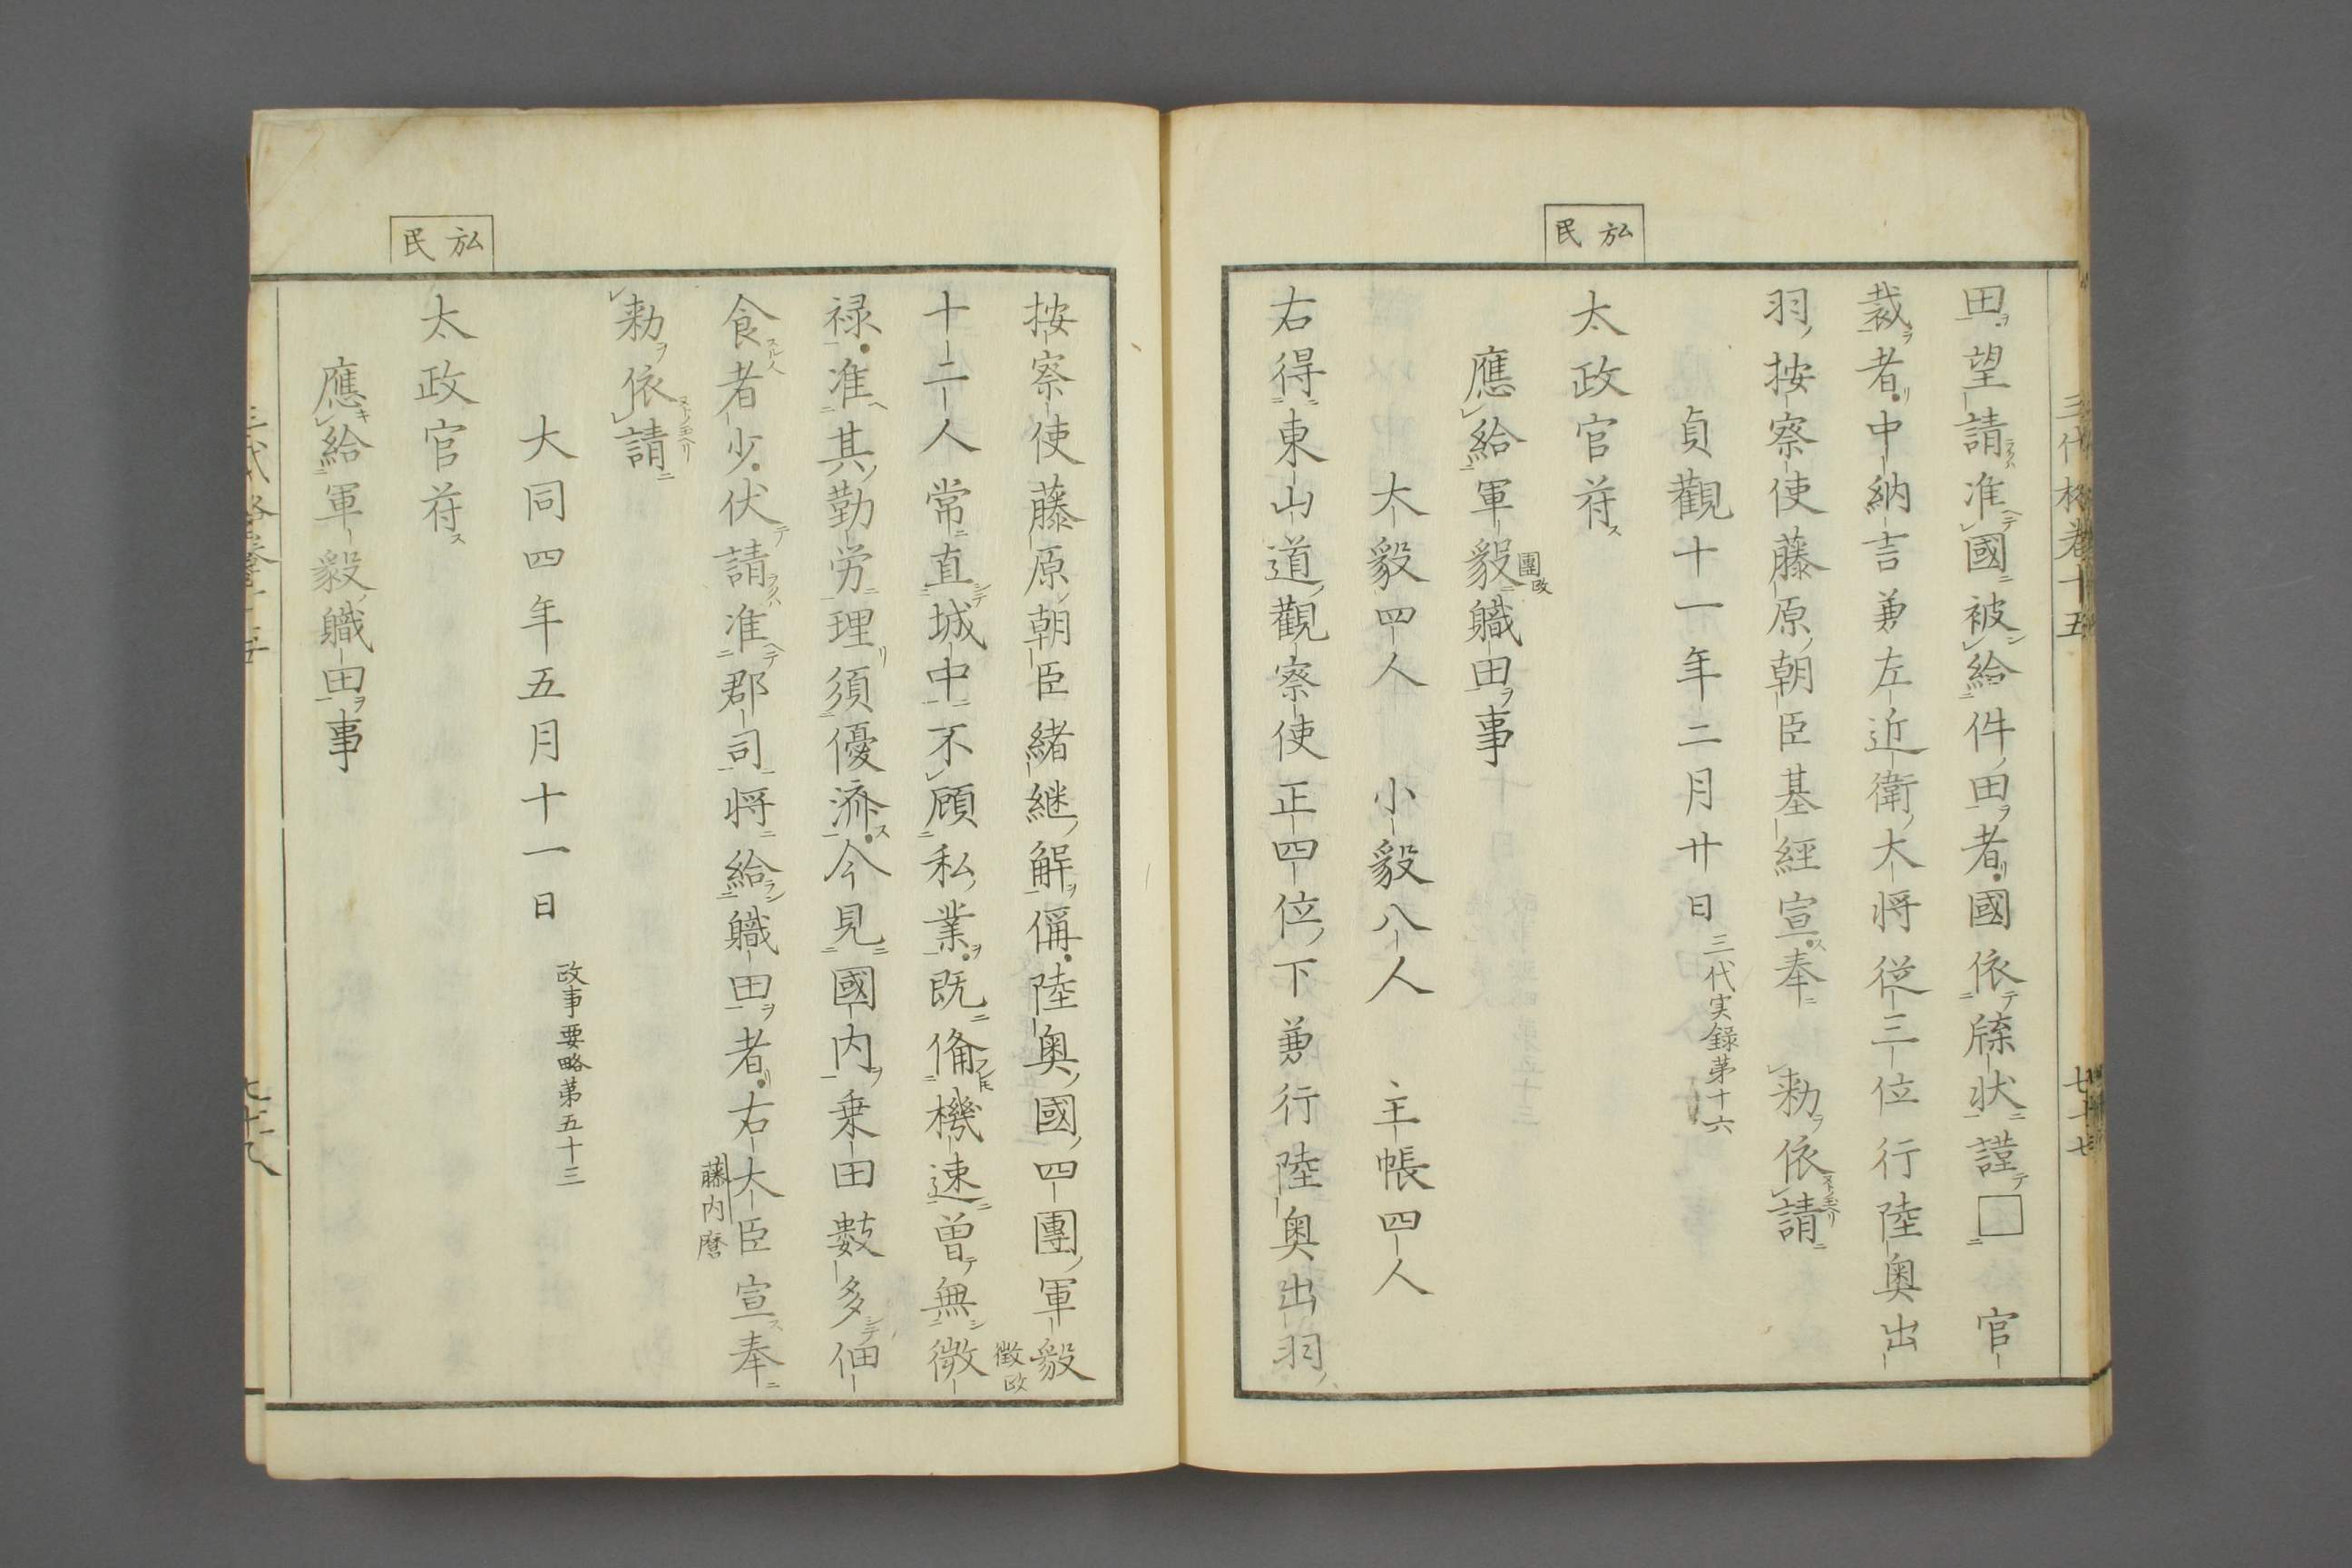 三代格卷十五
七十七
田望請准國被給件田者國依牒状謹□官
裁者中納言兼左近衛大将従三位行陸奥出
羽按察使藤原朝臣基經宣奉勅依請
貞觀十一年二月廿日 三代実録第十六
弘民
太政官符
應給軍毅職田事
團政
大毅四人 小毅八人 主帳四人
右得東山道觀察使正四位下兼行陸奥出羽
按察使藤原朝臣緒継解偁陸奥國四團軍毅
十二人常直城中不顧私業既備機速曽無微
徴政
禄准其勤労理須優済今見國内乗田數多佃
食者少伏請准郡司将給職田者右大臣宣奉
藤内麿
勅依請
大同四年五月十一日 政事要略第五十三
弘民
太政官符
應給軍毅職田事
七十八